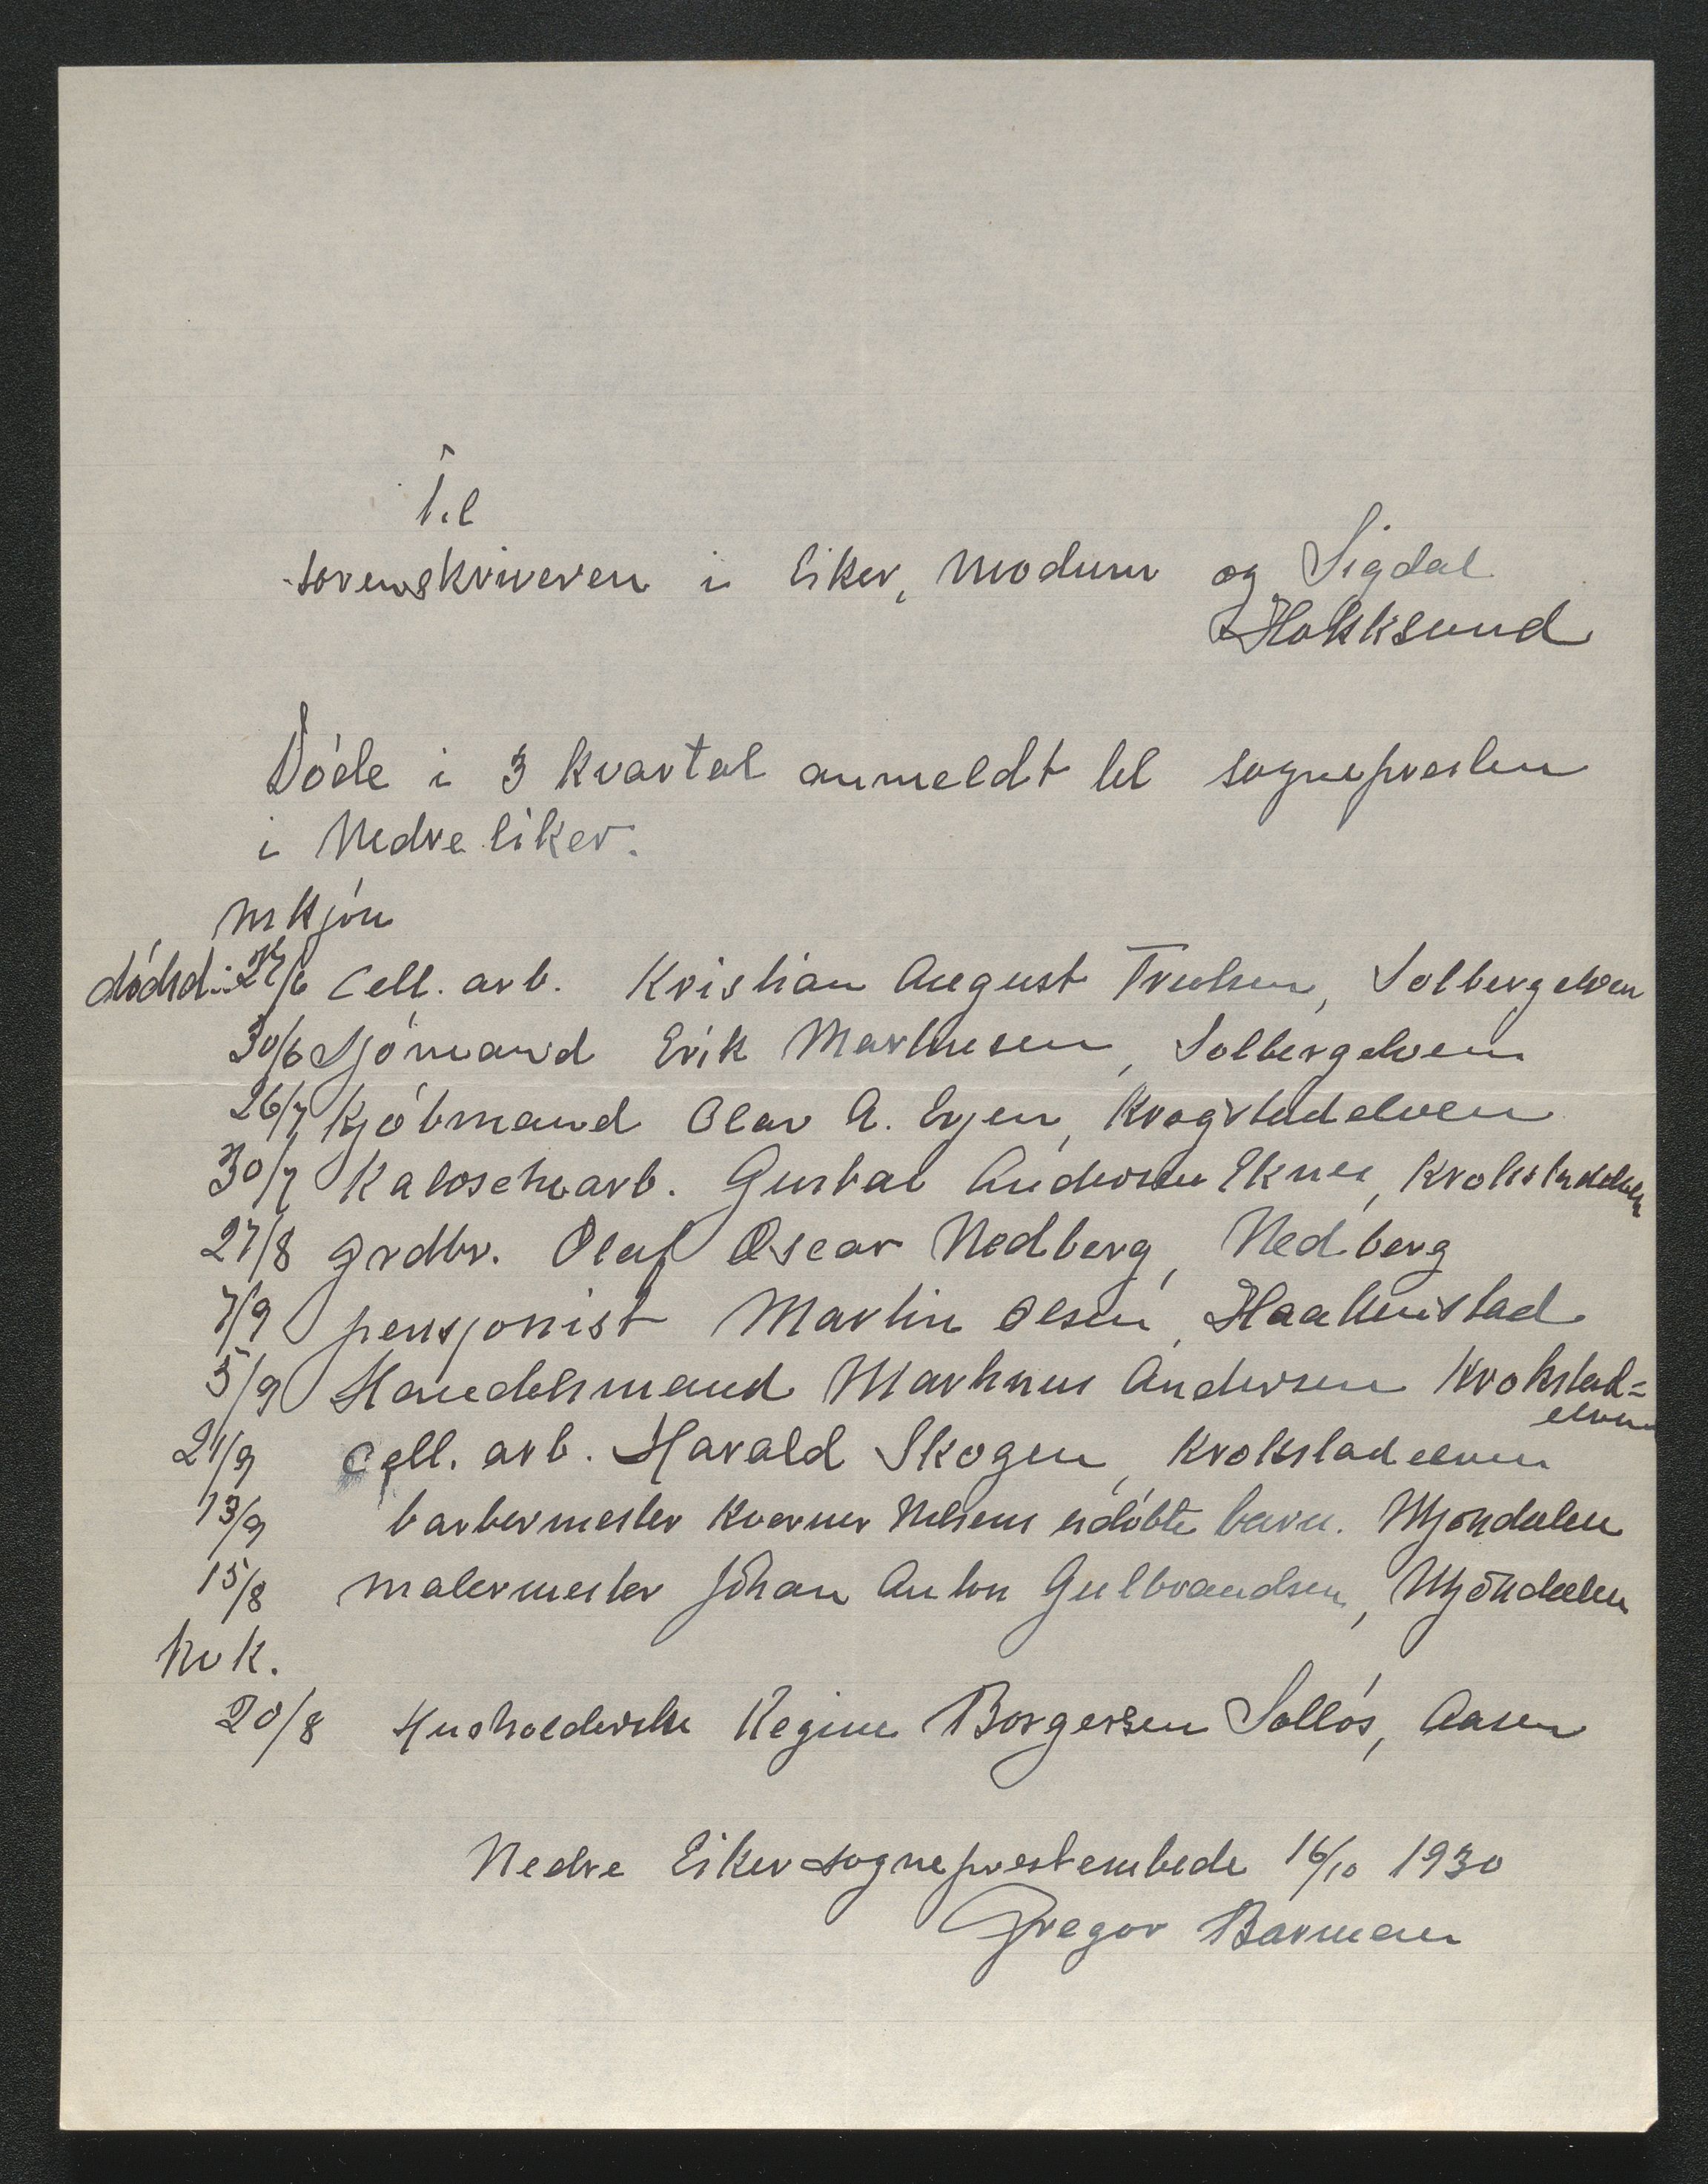 Til
sorenskriveren i Eiker, Modum og Sigdal
Hokksund
Döde i 3 kvartal anmeldt til sognepresten
i Nedre Eiker.
Mkjön
dödsd.: 27/6 Cell. arb. Kristian August Trulsen, Solbergelven
30/6 Sjömand Erik Marthisen, Solbergelven
26/7 Kjöbmand Olav A. Evjen, Krogstadelven
30/7 Kaloschearb. Gustav Andersen Eknes, Krokstadelven
27/8 grdbr. Olaf Oscar Nedberg, Nedberg
7/9 pensjonist Martin Olsen, Haakenstad
5/9 Handelsmand Markus Andersen Krokstad=
elven
21/9 Cell. arb. Harald Skogen, Krokstadelven
13/9 barbermester Kverner Nilsens udöbte barn. Mjöndalen
15/8 malermester Johan Anton Gulbrandsen, Mjöndalen
Kvk.
20/8 Husholderske Regine Borgersen Sollös, Aasen
Nedre Eiker sogneprestembede 16/10 1930
Gregor Barman